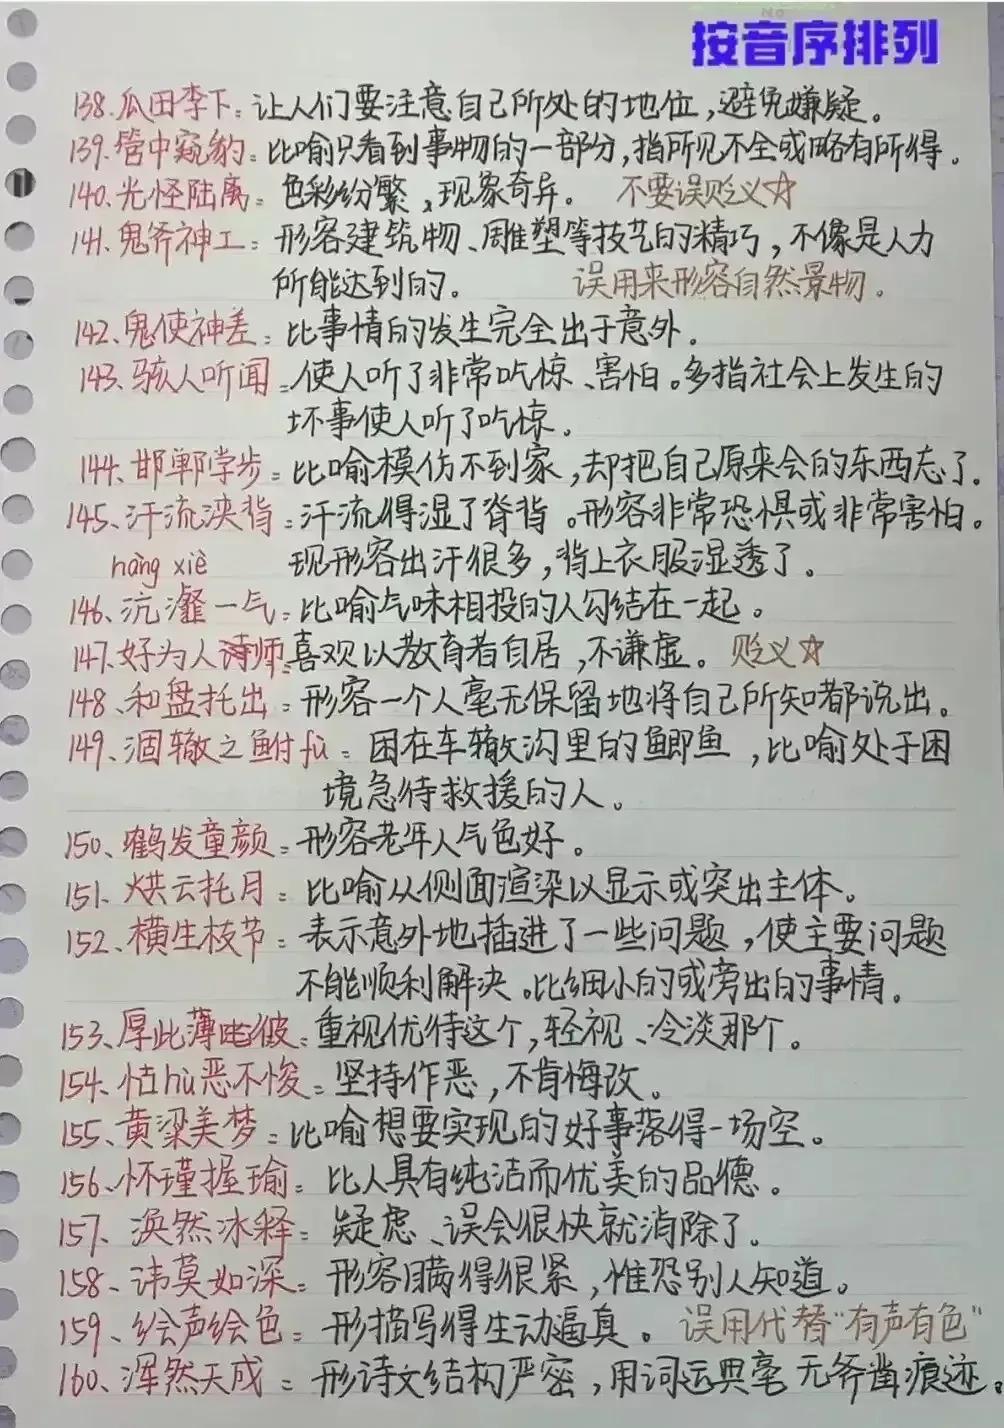 按音序排列
138.瓜田李下:让人们要注意自己所处的地位,避免嫌疑。
139.管中窥豹:比喻只看到事物的一部分,指所见不全或略有所得。
140.光怪陆离:色彩纷繁,现象奇异。 不要误贬义☆
141.鬼斧神工:形容建筑物、雕塑等技艺的精巧,不像是人力
所能达到的。 误用来形容自然景物。
142.鬼使神差:比事情的发生完全出于意外。
143、骇人听闻:使人听了非常吃惊、害怕。多指社会上发生的
坏事使人听了吃惊。
144、邯郸学步:比喻模仿不到家,却把自己原来会的东西忘了。
145、汗流浃背:汗流得湿了脊背。形容非常恐惧或非常害怕。
现形容出汗很多,背上衣服湿透了。
hàng xiè
146、沆瀣一气:比喻气味相投的人勾结在一起。
147、好为人师:喜观以教育者自居,不谦虚。 贬义☆
148、和盘托出:形容一个人毫无保留地将自己所知都说出。
149、涸辙之鲋fù:困在车辙沟里的鲫鱼,比喻处于困
境急待救援的人。
150、鹤发童颜:形容老年人气色好。
151、烘云托月:比喻从侧面渲染以显示或突出主体。
152、横生枝节:表示意外地插进了一些问题,使主要问题
不能顺利解决。比细小的或旁出的事情。
153、厚此薄彼:重视优待这个,轻视、冷淡那个。
154、怙hù恶不悛:坚持作恶,不肯悔改。
155、黄梁美梦:比喻想要实现的好事落得一场空。
156、怀瑾握瑜:比人具有纯洁而优美的品德。
157、涣然冰释:疑虑、误会很快就消除了。
158、讳莫如深:形容瞒得很紧,惟恐别人知道。
159、绘声绘色:形描写得生动逼真。 误用代替“有声有色”
160、浑然天成:形诗文结构严密,用词运典毫无斧凿痕迹。